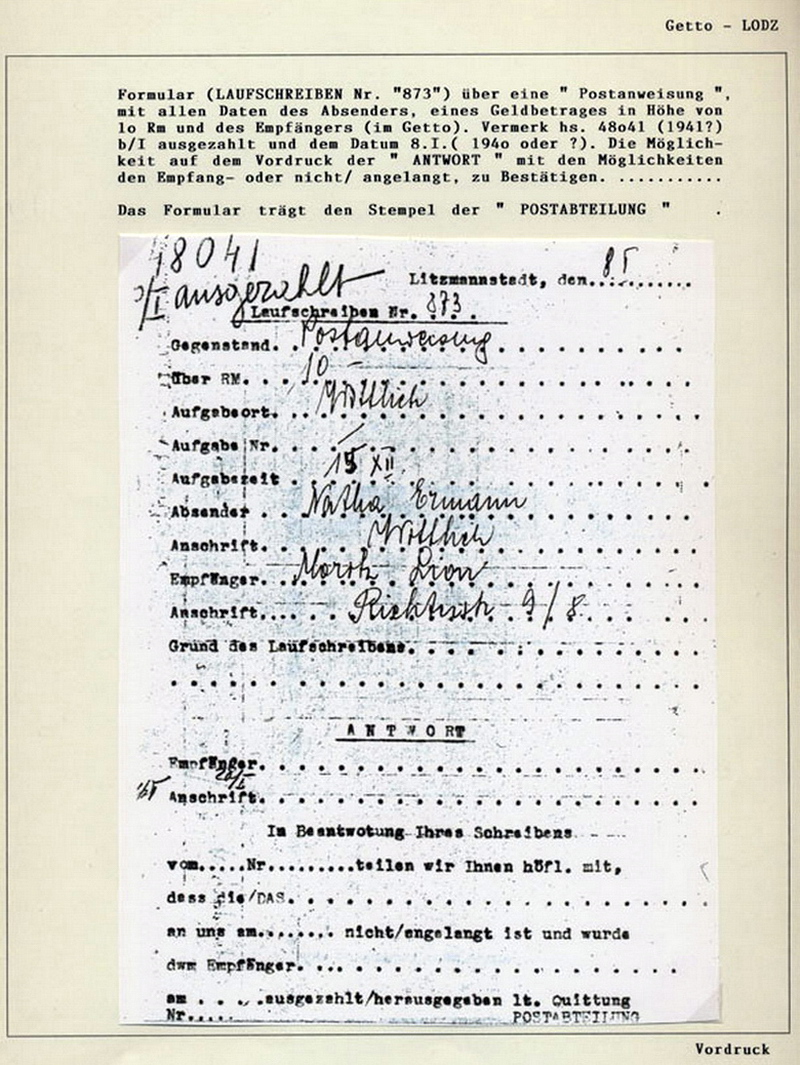 Getto - LODZ
Formular (LAUFSCHREIBEN Nr. "873") über eine " Postanweisung ",
mit allen Daten des Absenders, eines Geldbetrages in Höhe von
lo Rm und des Empfängers (im Getto). Vermerk hs. 48o41 (1941?)
b/I ausgezahlt und dem Datum 8.I.( 194o oder ?). Die Möglich-
keit auf dem Vordruck der " ANTWORT " mit den Möglichkeiten
den Empfang- oder nicht/ angelangt, zu Bestätigen. ...........
Das Formular trägt den Stempel der " POSTABTEILUNG " .
48041
ausgezahlt
Litzmannstadt, den............
Laufschreiben Nr. 873.
Gegenstand. Postanweisung
über RM. 10 -
Aufgabeort. Wittlich
Aufgabe Nr.
Aufgabezeit 15 XII
Absender Natha Ermann
Anschrift. Wittlich
Empfänger. Lion
Anschrift. 9/8
Grund des Laufschreibens.
ANTWORT
Empfänger.
Anschrift.
In Beantwotung Ihres Schreibens
vom.....Nr.........teilen wir Ihnen höfl. mit,
dass die/DAS.
an uns am........ nicht/angelangt ist und wurde
dwm Empfänger.
am . . . .ausgezahlt/herausgegeben lt. Quittung
Nr.....
POSTABTEILUNG
Vordruck